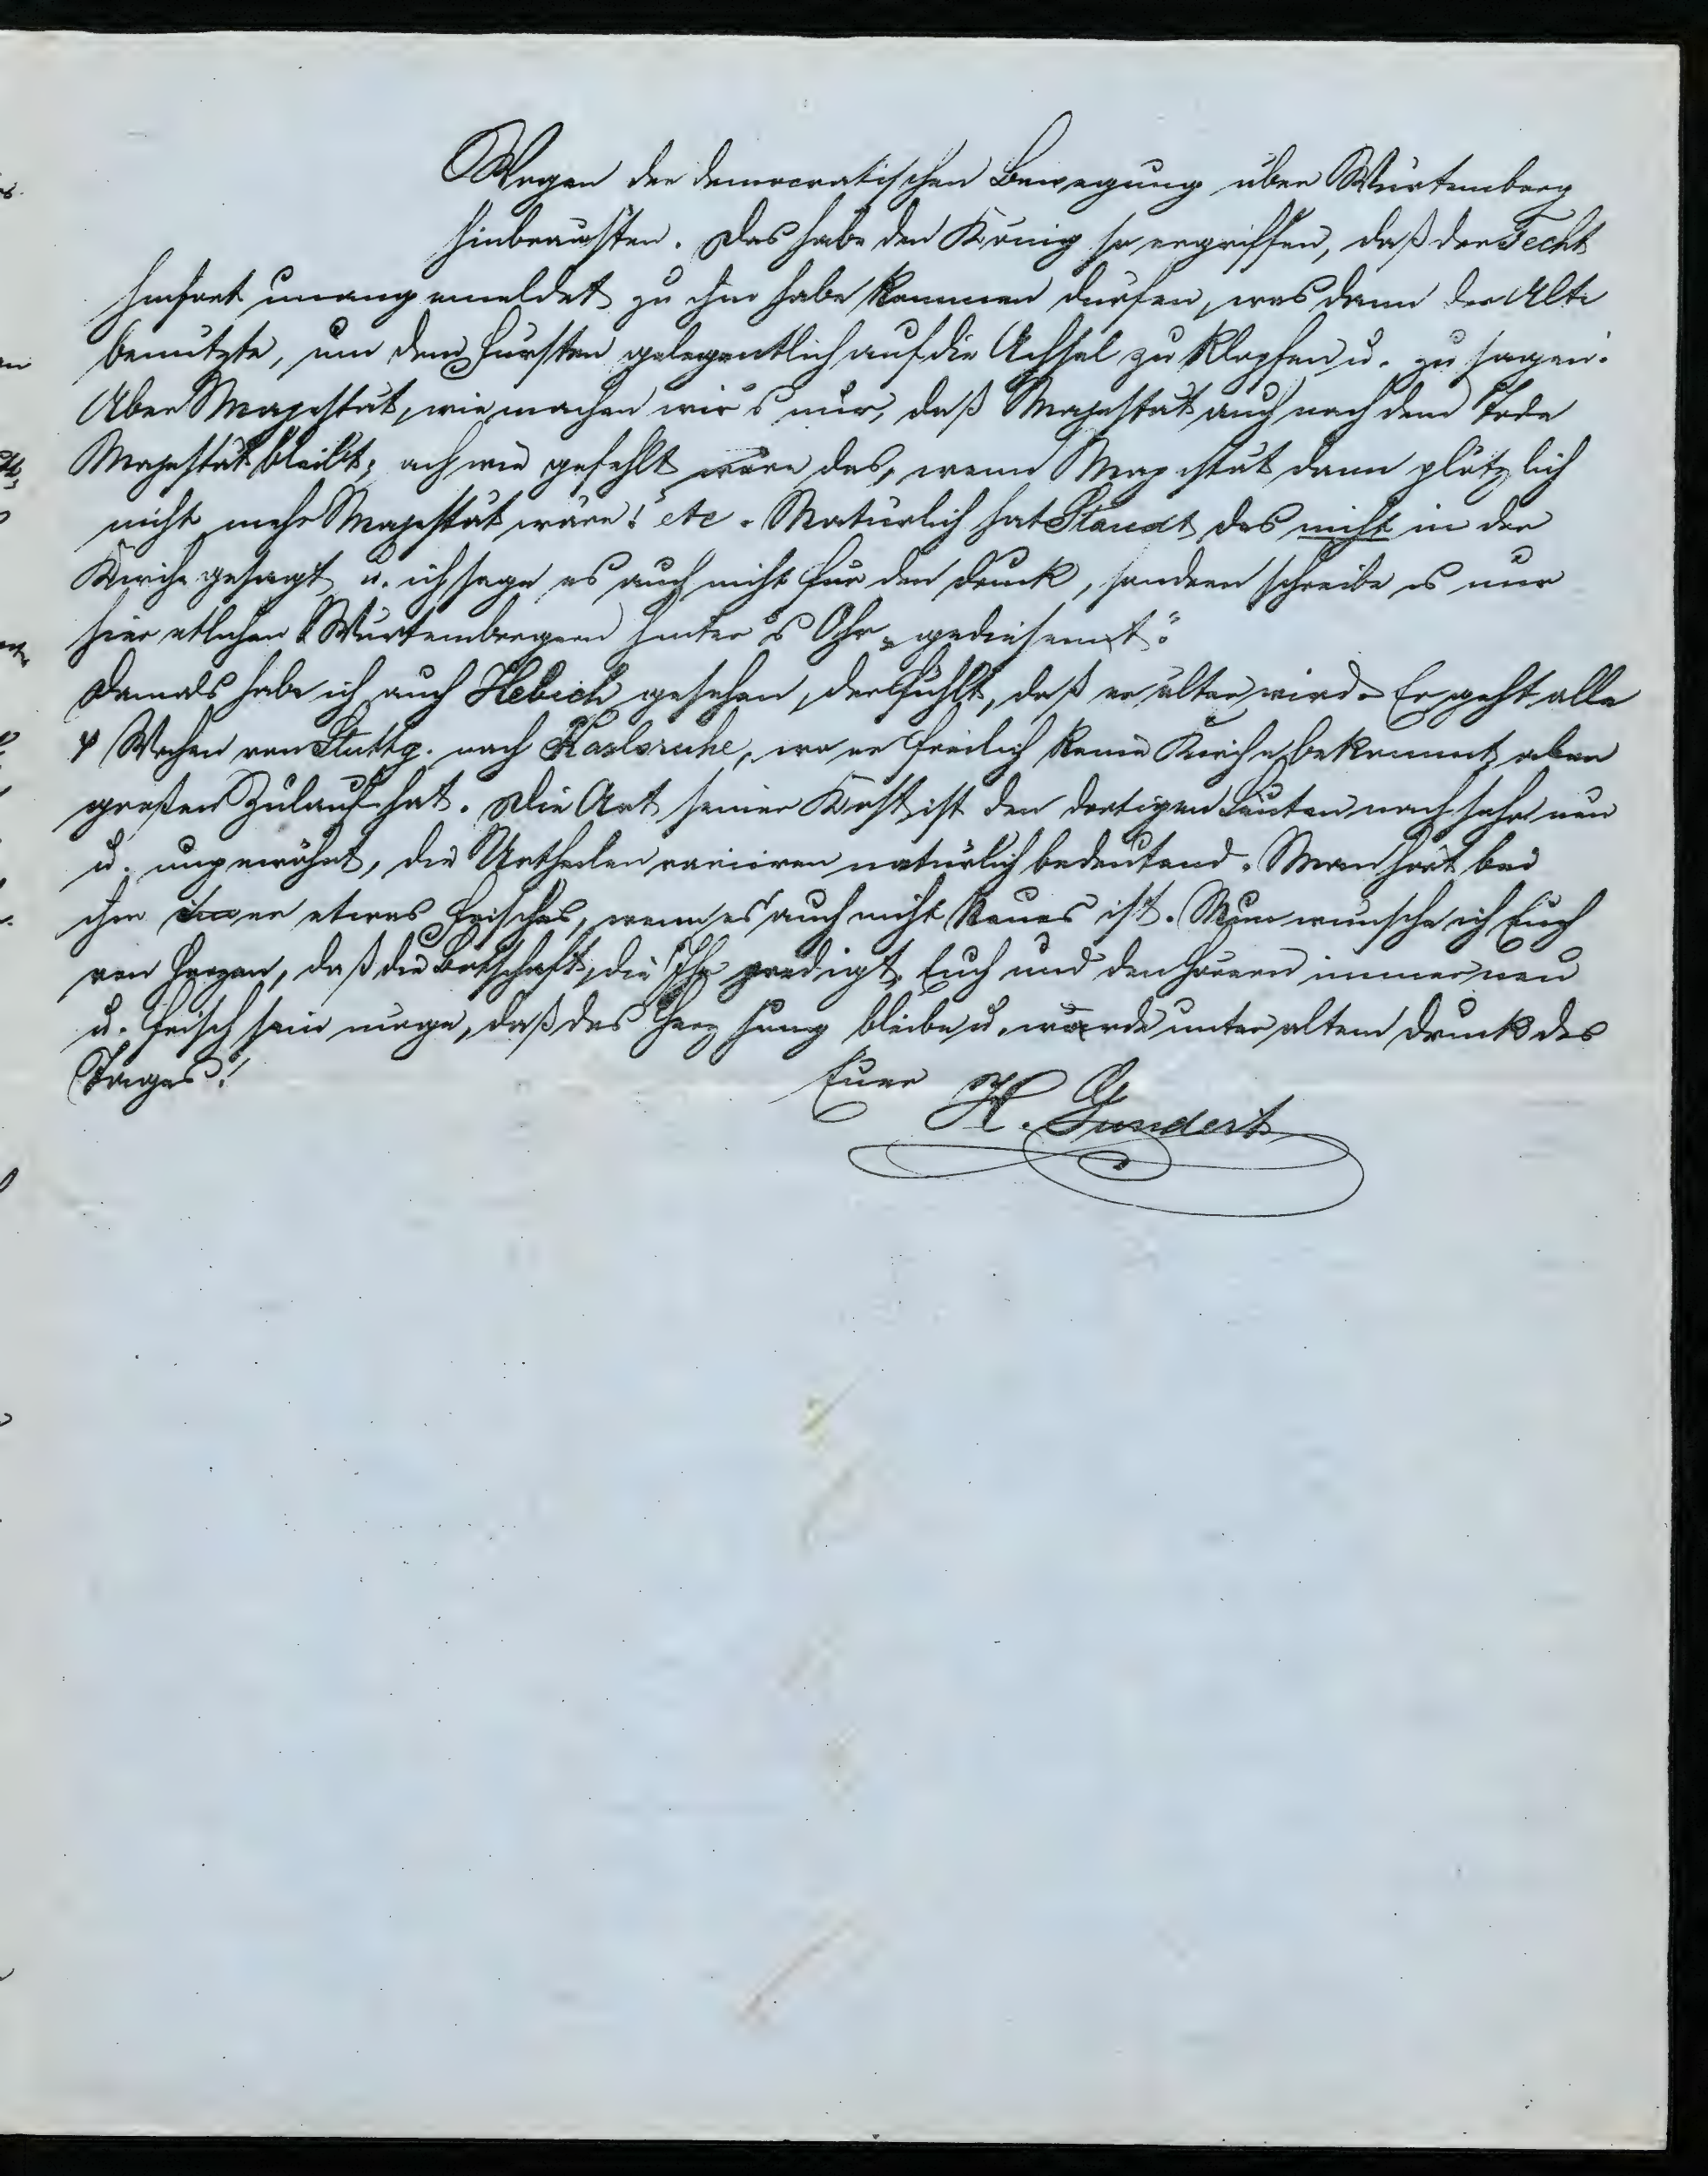 Wogen der democratischen Bewegung über Würtemberg
hinbrausten. Das habe den König so ergriffen, daß der Fecht
hinfort unangemeldet zu ihm habe kommen dürfen, was dann der Alte
benutzte, um dem Fürsten gelegentlich auf die Achsel zu klopfen u. zu sagen:
Aber Majestät, wie machen wir's nur, daß Majestät auch nach dem Tode
Majestät bleibt; ach wie gefehlt wäre das, wenn Majestät dann plötzlich
nicht mehr Majestät wäre! etc. Natürlich hat Staudt das nicht in der
Kirche gesagt u. ich sage es auch nicht für den Druck, sondern schreibe es nur
hier etlichen Würtembergern hinter's Ohr
Damals habe ich auch Hebich gesehen, der fühlt, daß er älter wird. Er geht alle
4 Wochen von Stuttg. nach Karlsruhe, wo er freilich keine Kirche bekommt, aber
großen Zulauf hat. Die Art seiner Kost ist den dortigen Leuten noch sehr neu
u. ungewöhnt, die Urtheilen variiren natürlich bedeutend. Man hört bei
ihm immer etwas frisches, wenn es auch nicht Neues ist. Nun wünsche ich Euch
von Herzen, daß die Botschaft, die Ihr predigt, Euch und den Hörern immer neu
u. frisch sein möge, daß das Herz jung bleibe u. werde unter altem Druck des
Tages!
Euer H. Gundert